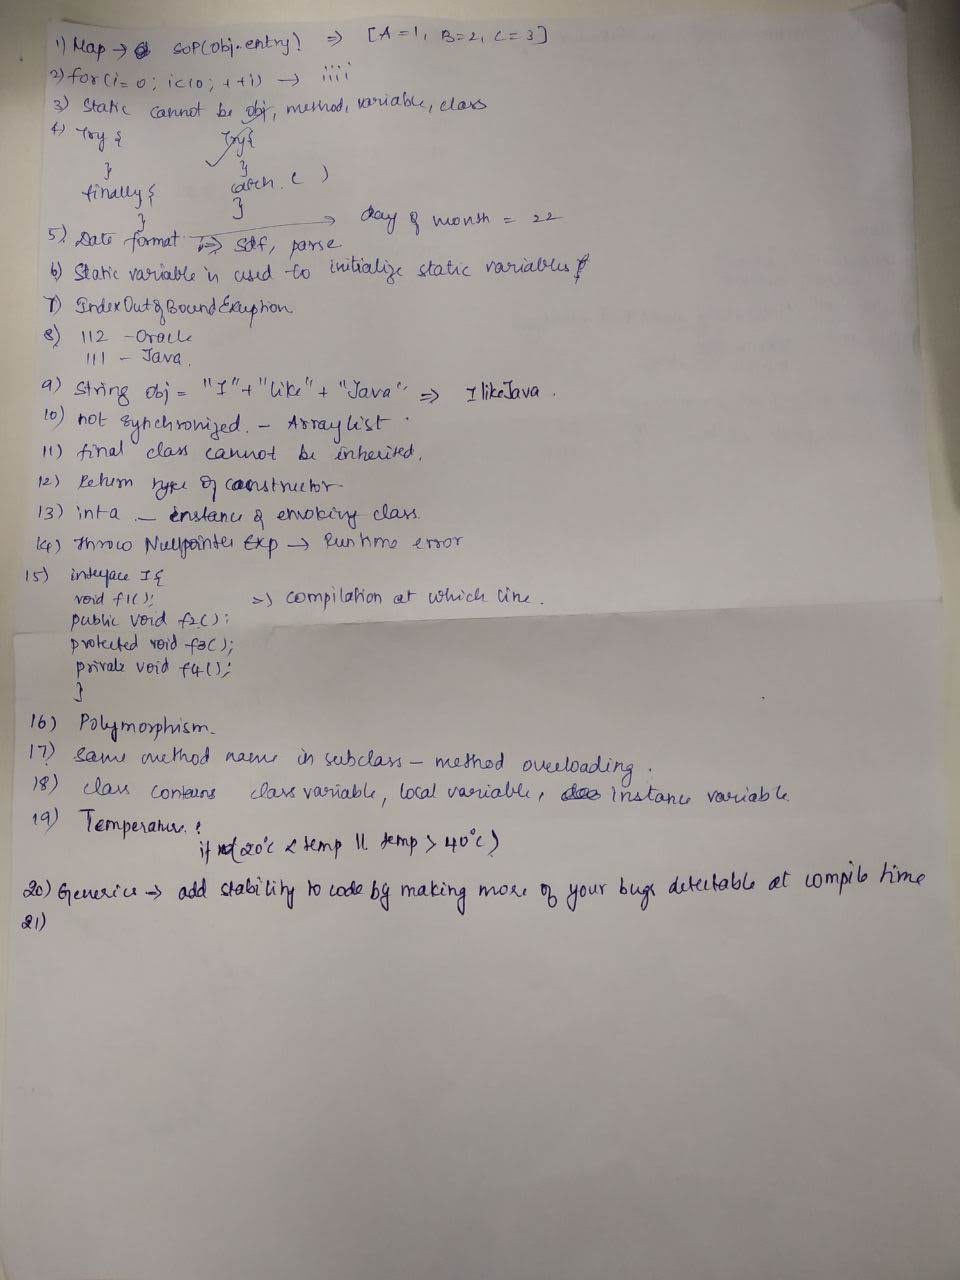 1) Map → SOP(obj.entry) ⇒ [A=1, B=2, C=3]
2) for(i=0; i<10; ++i) → iiii
3) Static cannot be obj, method, variable, class
4) Try { Try{
} }
finally { catch. ( )
} }
→ day of month = 22
5) Date format ⇒ sdf, parse
6) Static variable is used to initialize static variables
7) IndexOutOfBoundException
8) 112 - Oracle
111 - Java.
9) String obj = "I"+"like"+"Java" ⇒ IlikeJava.
10) not synchronized. - Arraylist
11) final class cannot be inherited.
12) Return type of constructor
13) int a - instance of invoking class.
14) Throw Nullpointer Exp → Runtime error
15) interface I{
void f1(); ⇒ compilation at which line.
public void f2();
protected void f3();
private void f4();
}
16) Polymorphism.
17) same method name in subclass - method overloading.
18) class contains class variable, local variable, instance variable.
19) Temperature:
if (20°c < temp || temp > 40°c)
20) Generics → add stability to code by making more of your bugs detectable at compile time
21)